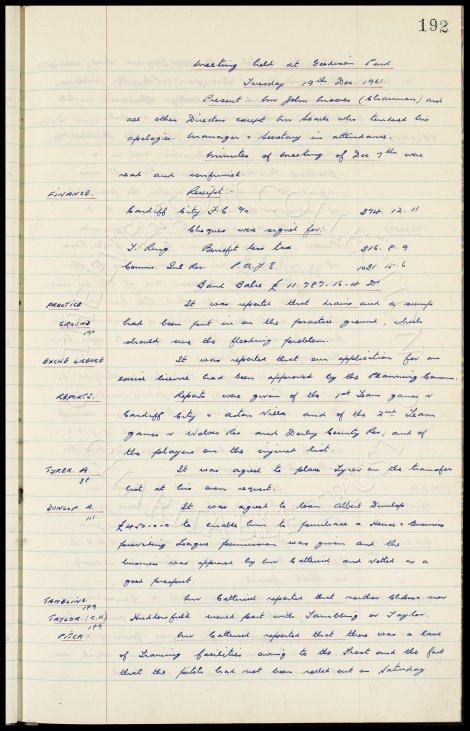 192
Meeting held at Goodison Park
Tuesday 19th Dec. 1961.
Present:- Mr John Moores (Chairman) and
all other Directors except Mr Searle who tendered his
apologies. Manager & Secretary in attendance.
Minutes of Meeting of Dec 7th were
read and confirmed
FINANCE. Receipt:-
Cardiff City F.C % 374. 12. 11
Cheques were signed for:
T. Ring Benefit less tax 316. 8. 9
Comms. Inl Rev. P.A.Y.E. 1031. 15. 6
Bank Balce £ 11.787-16-4 Dr
PRACTICE It was reported that drains and a sump
GROUND had been put in on the practice ground, which
190 should cure the flooding problem.
EXCISE LICENCE It was reported that our application for an
excise license had been approved by the Planning Comms.
REPORTS. Reports were given of the 1st Team games v
Cardiff City & Aston Villa and of the 2nd Team
games v Wolves Res and Derby County Res, and of
the players on the injured list.
TYRER. A. It was agreed to place Tyrer on the transfer
list, at his own request.
DUNLOP A. It was agreed to loan Albert Dunlop
111 £450-0-0 to enable him to purchase a House & Business
providing League permission was given and the
business was approved by Mr Catterick and vetted as a
good prospect.
TAMBLING Mr Catterick reported that neither Chelsea nor
189
TAYLOR (C.H) Huddersfield would part with Tambling or Taylor.
189
PITCH. Mr Catterick reported that there was a lack
of Training facilities owing to the Frost and the fact
that the pitch had not been rolled out on Saturday